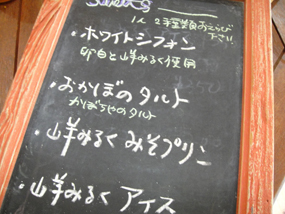 Sweets
1人 2種類おえらび
下さい
・ホワイトシフォン
卵白と山羊みるく使用
・おかぼのタルト
かぼちゃのタルト
・山羊みるく みそプリン
・山羊みるく アイス